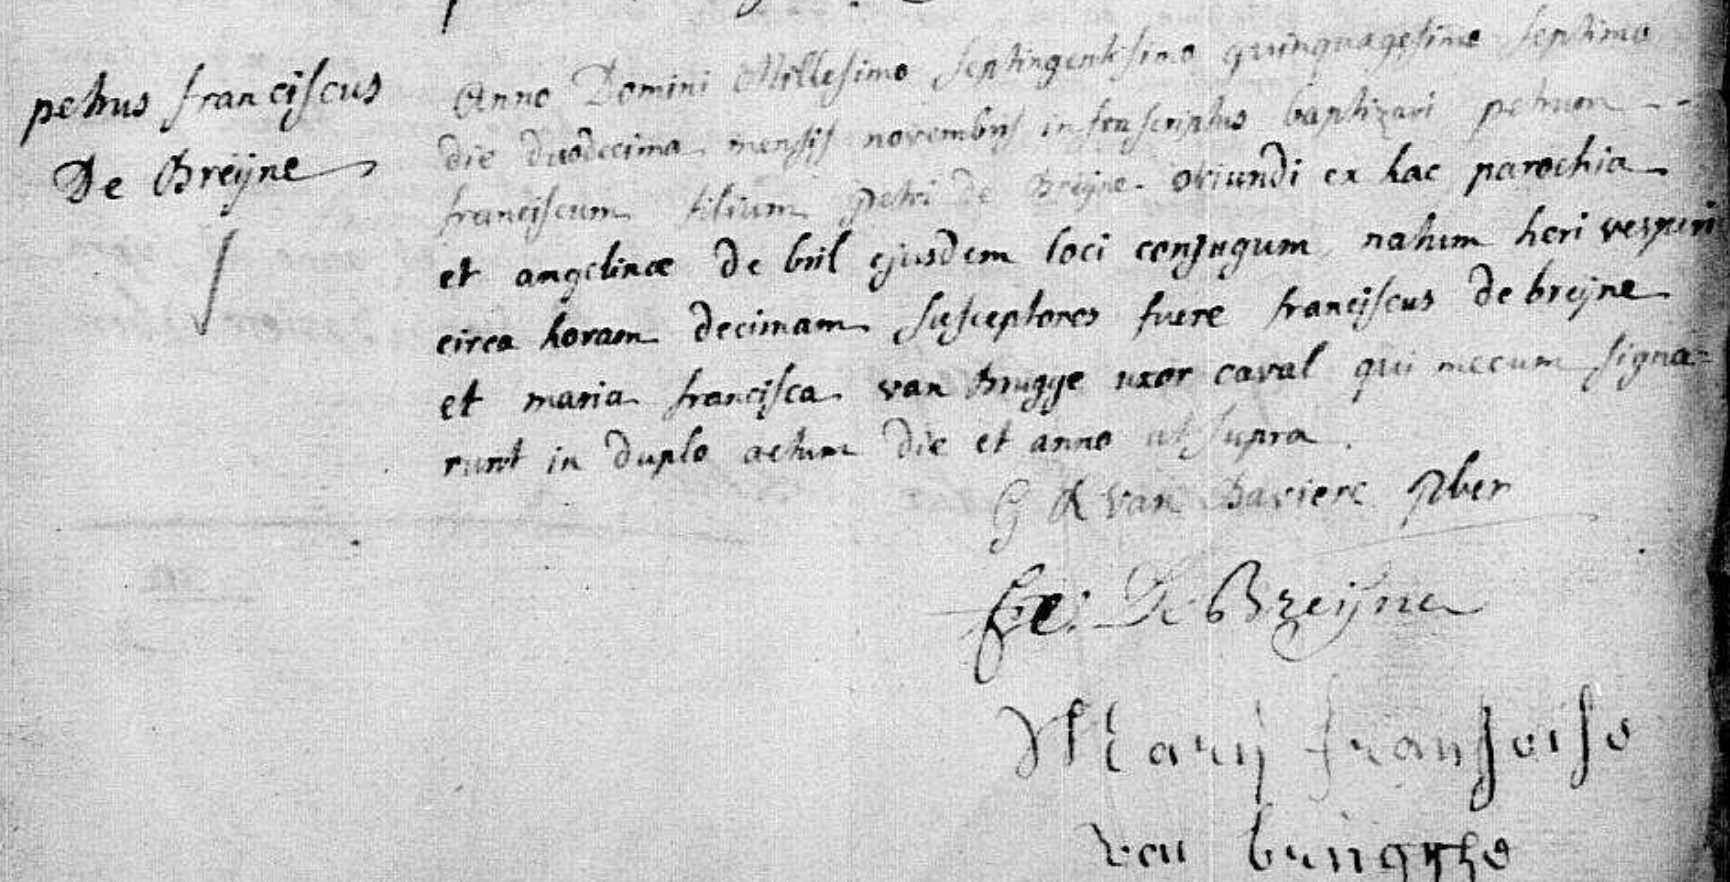 petrus franciscus
De Breÿne
Anno Domini Millesimo septingentesimo quinquagesimo septimo
die duodecima mensis novembris infrascriptus baptizavi petrum --
franciscum filium petri de Breÿne oriundi ex hac parochia
et angelinae de bril ejusdem loci conjugum natum heri vesperi
circa horam decimam susceptores fuere franciscus de breÿne
et maria francisca van Brugge uxor caval qui mecum signa=
runt in duplo actum die et anno ut supra.
G R van Baviere pbr
De Breijne
Marij fransoise
van